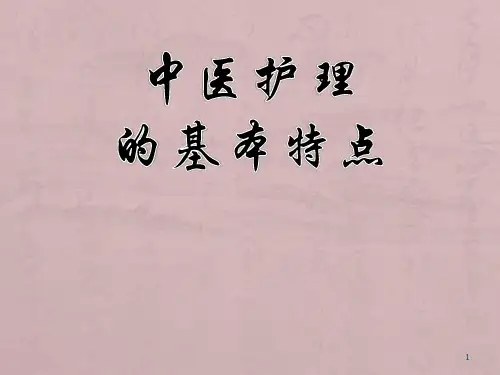 中医护理
的基本特点
1